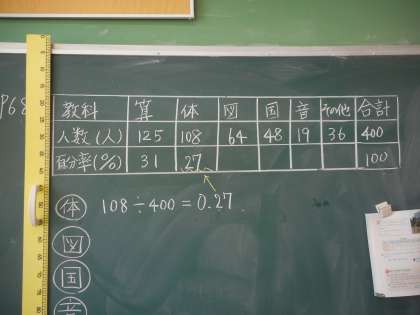 P68
教科 算 体 図 国 音 その他 合計
人数(人) 125 108 64 48 19 36 400
百分率(%) 31 27 100
体 108÷400=0.27
図
国
音